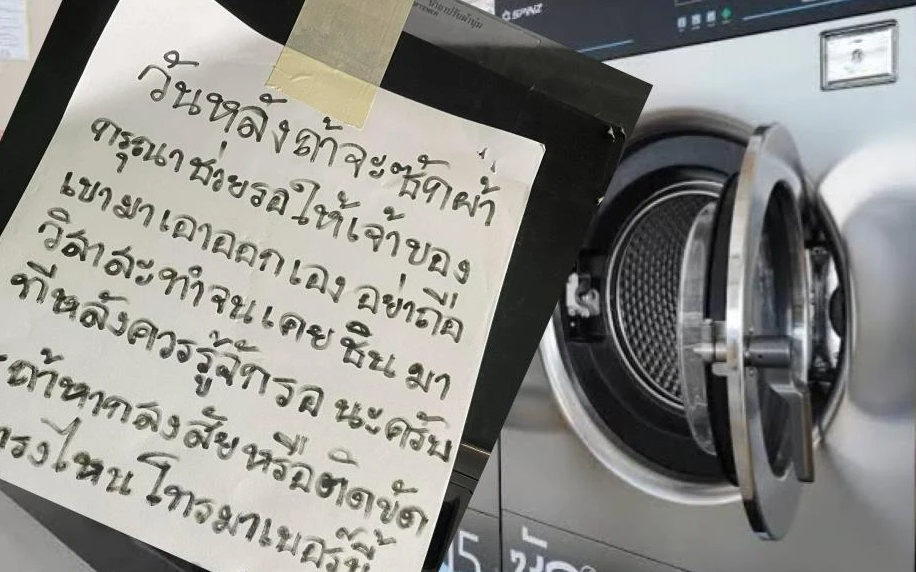 วันหลังถ้าจะซักผ้า
กรุณาช่วยรอให้เจ้าของ
เขามาเอาออกเอง อย่าถือ
วิสาสะทำจนเคยชิน มา
ทีหลังควรรู้จักรอ นะครับ
ถ้าหากสงสัยหรือติดขัด
ตรงไหน โทรมาเบอร์นี้
SPINZ